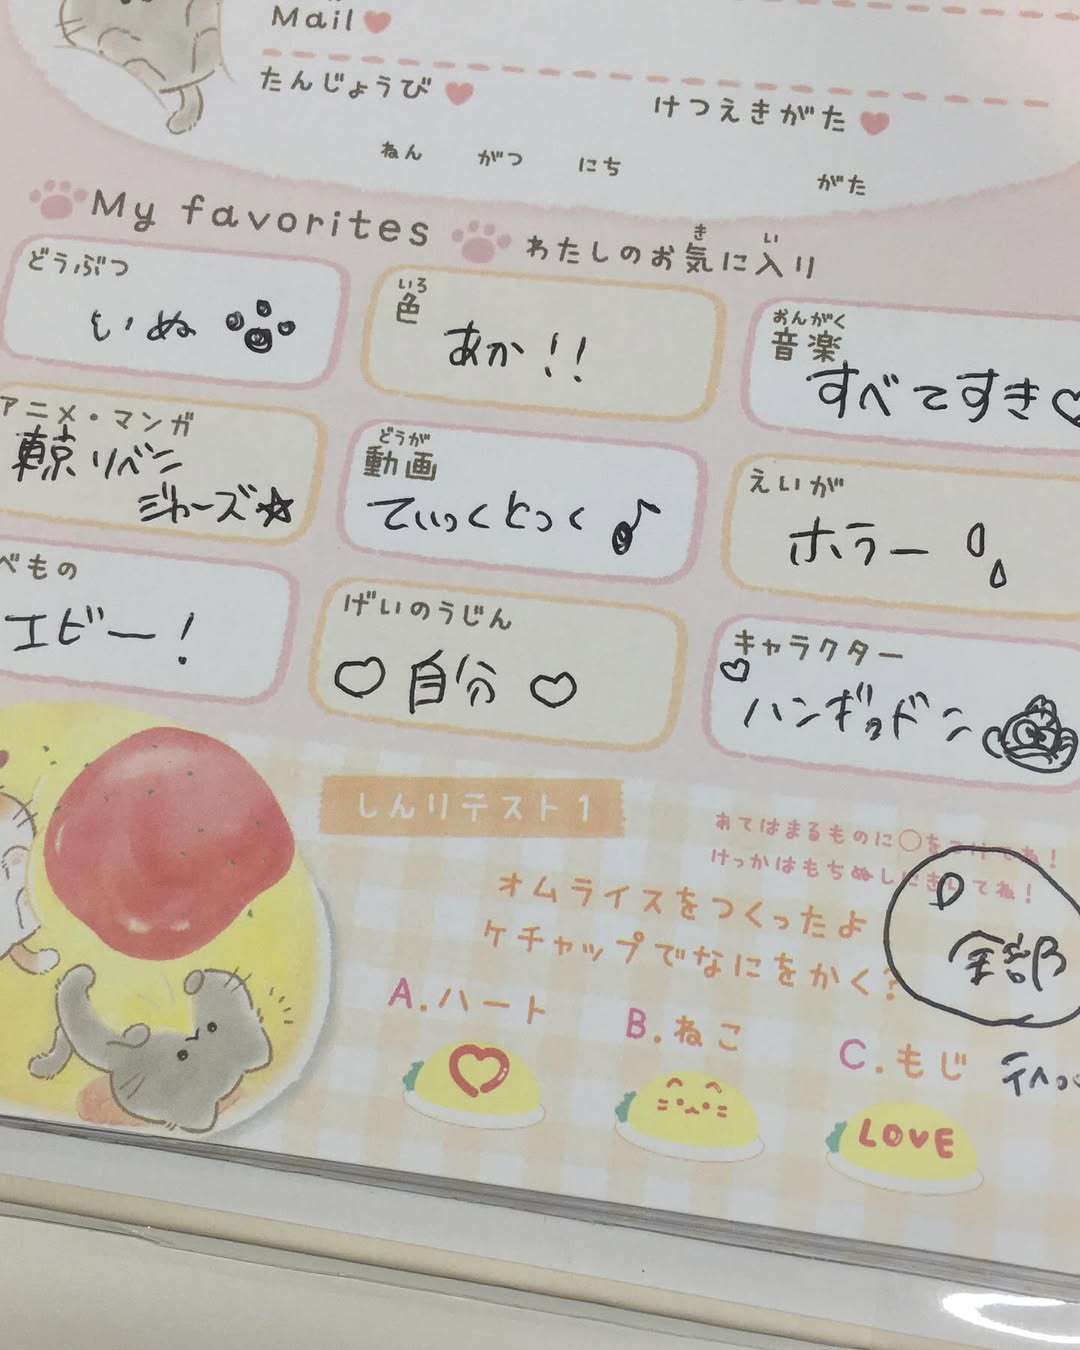 Mail
たんじょうび
けつえきがた
ねん がつ にち
がた
My favorites わたしのお気に入り
き い
どうぶつ
いぬ
いろ
色
あか!!
おんがく
音楽
すべてすき♡
アニメ・マンガ
東京リベン
ジャーズ☆
どうが
動画
てぃっくとっく♪
えいが
ホラー
べもの
エビー!
げいのうじん
♡自分♡
キャラクター
♡
ハンギョドン
しんりテスト1
あてはまるものに○をつけてね!
けっかはもちぬしにきいてね!
オムライスをつくったよ
ケチャップでなにをかく?
D
全部
A.ハート
B.ねこ
C.もじ
LOVE